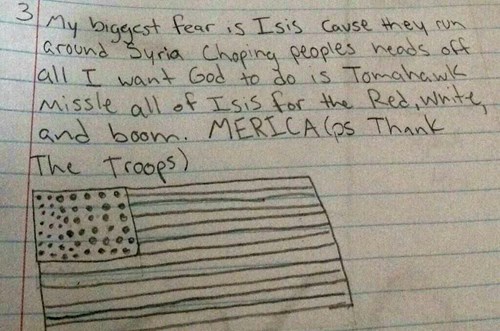 3 My biggest fear is Isis Cause they run
around Syria Choping peoples heads off
all I want God to do is Tomahawk
missle all of Isis for the Red, white,
and boom. MERICA (ps Thank
The Troops)